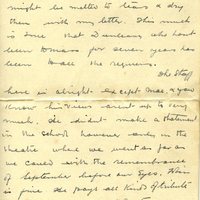 might be melted to tears & dry
them with my letter. This much
is sure that Duncans who hant
been Domass for seven years has
been D all the requiems.
The Staff
here is alright. except Mac & you
know his views arent up to very
much. He didnt make a statement
in the school however only in the
theatre where we went as far as
we cared with the remembrance
of September before our Eyes. Han
is fine. She pays all kinds of tribute